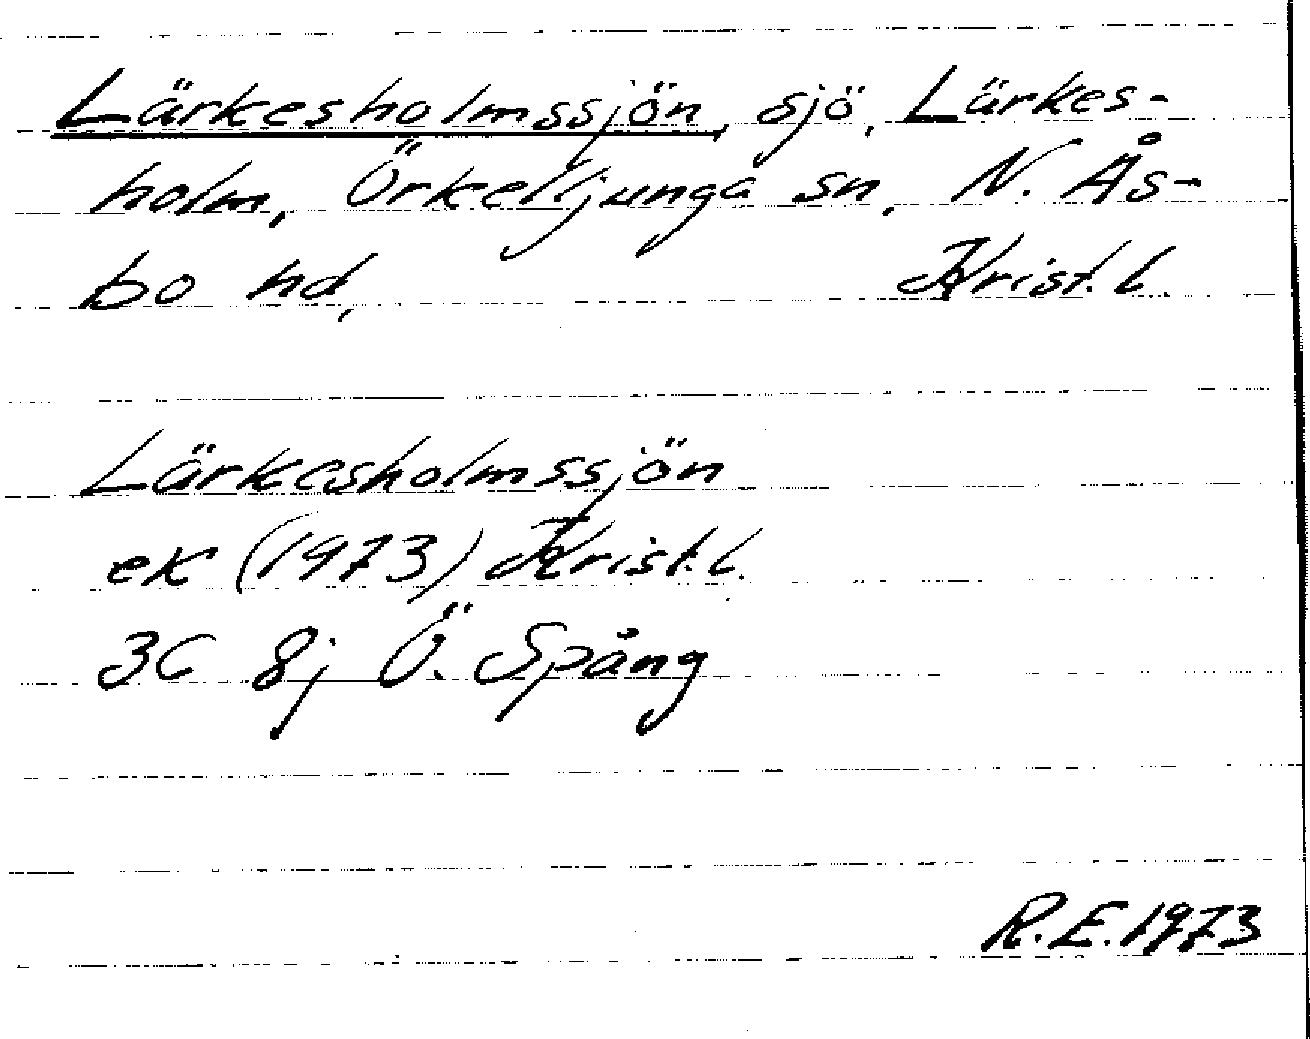 Lärkesholmssjön, sjö, Lärkes-
holm, Örkelljunga sn, N. Ås-
bo hd, Krist. l.
Lärkesholmssjön
ek (1973) Krist. l.
3C 8j Ö. Spång
R.E. 1973